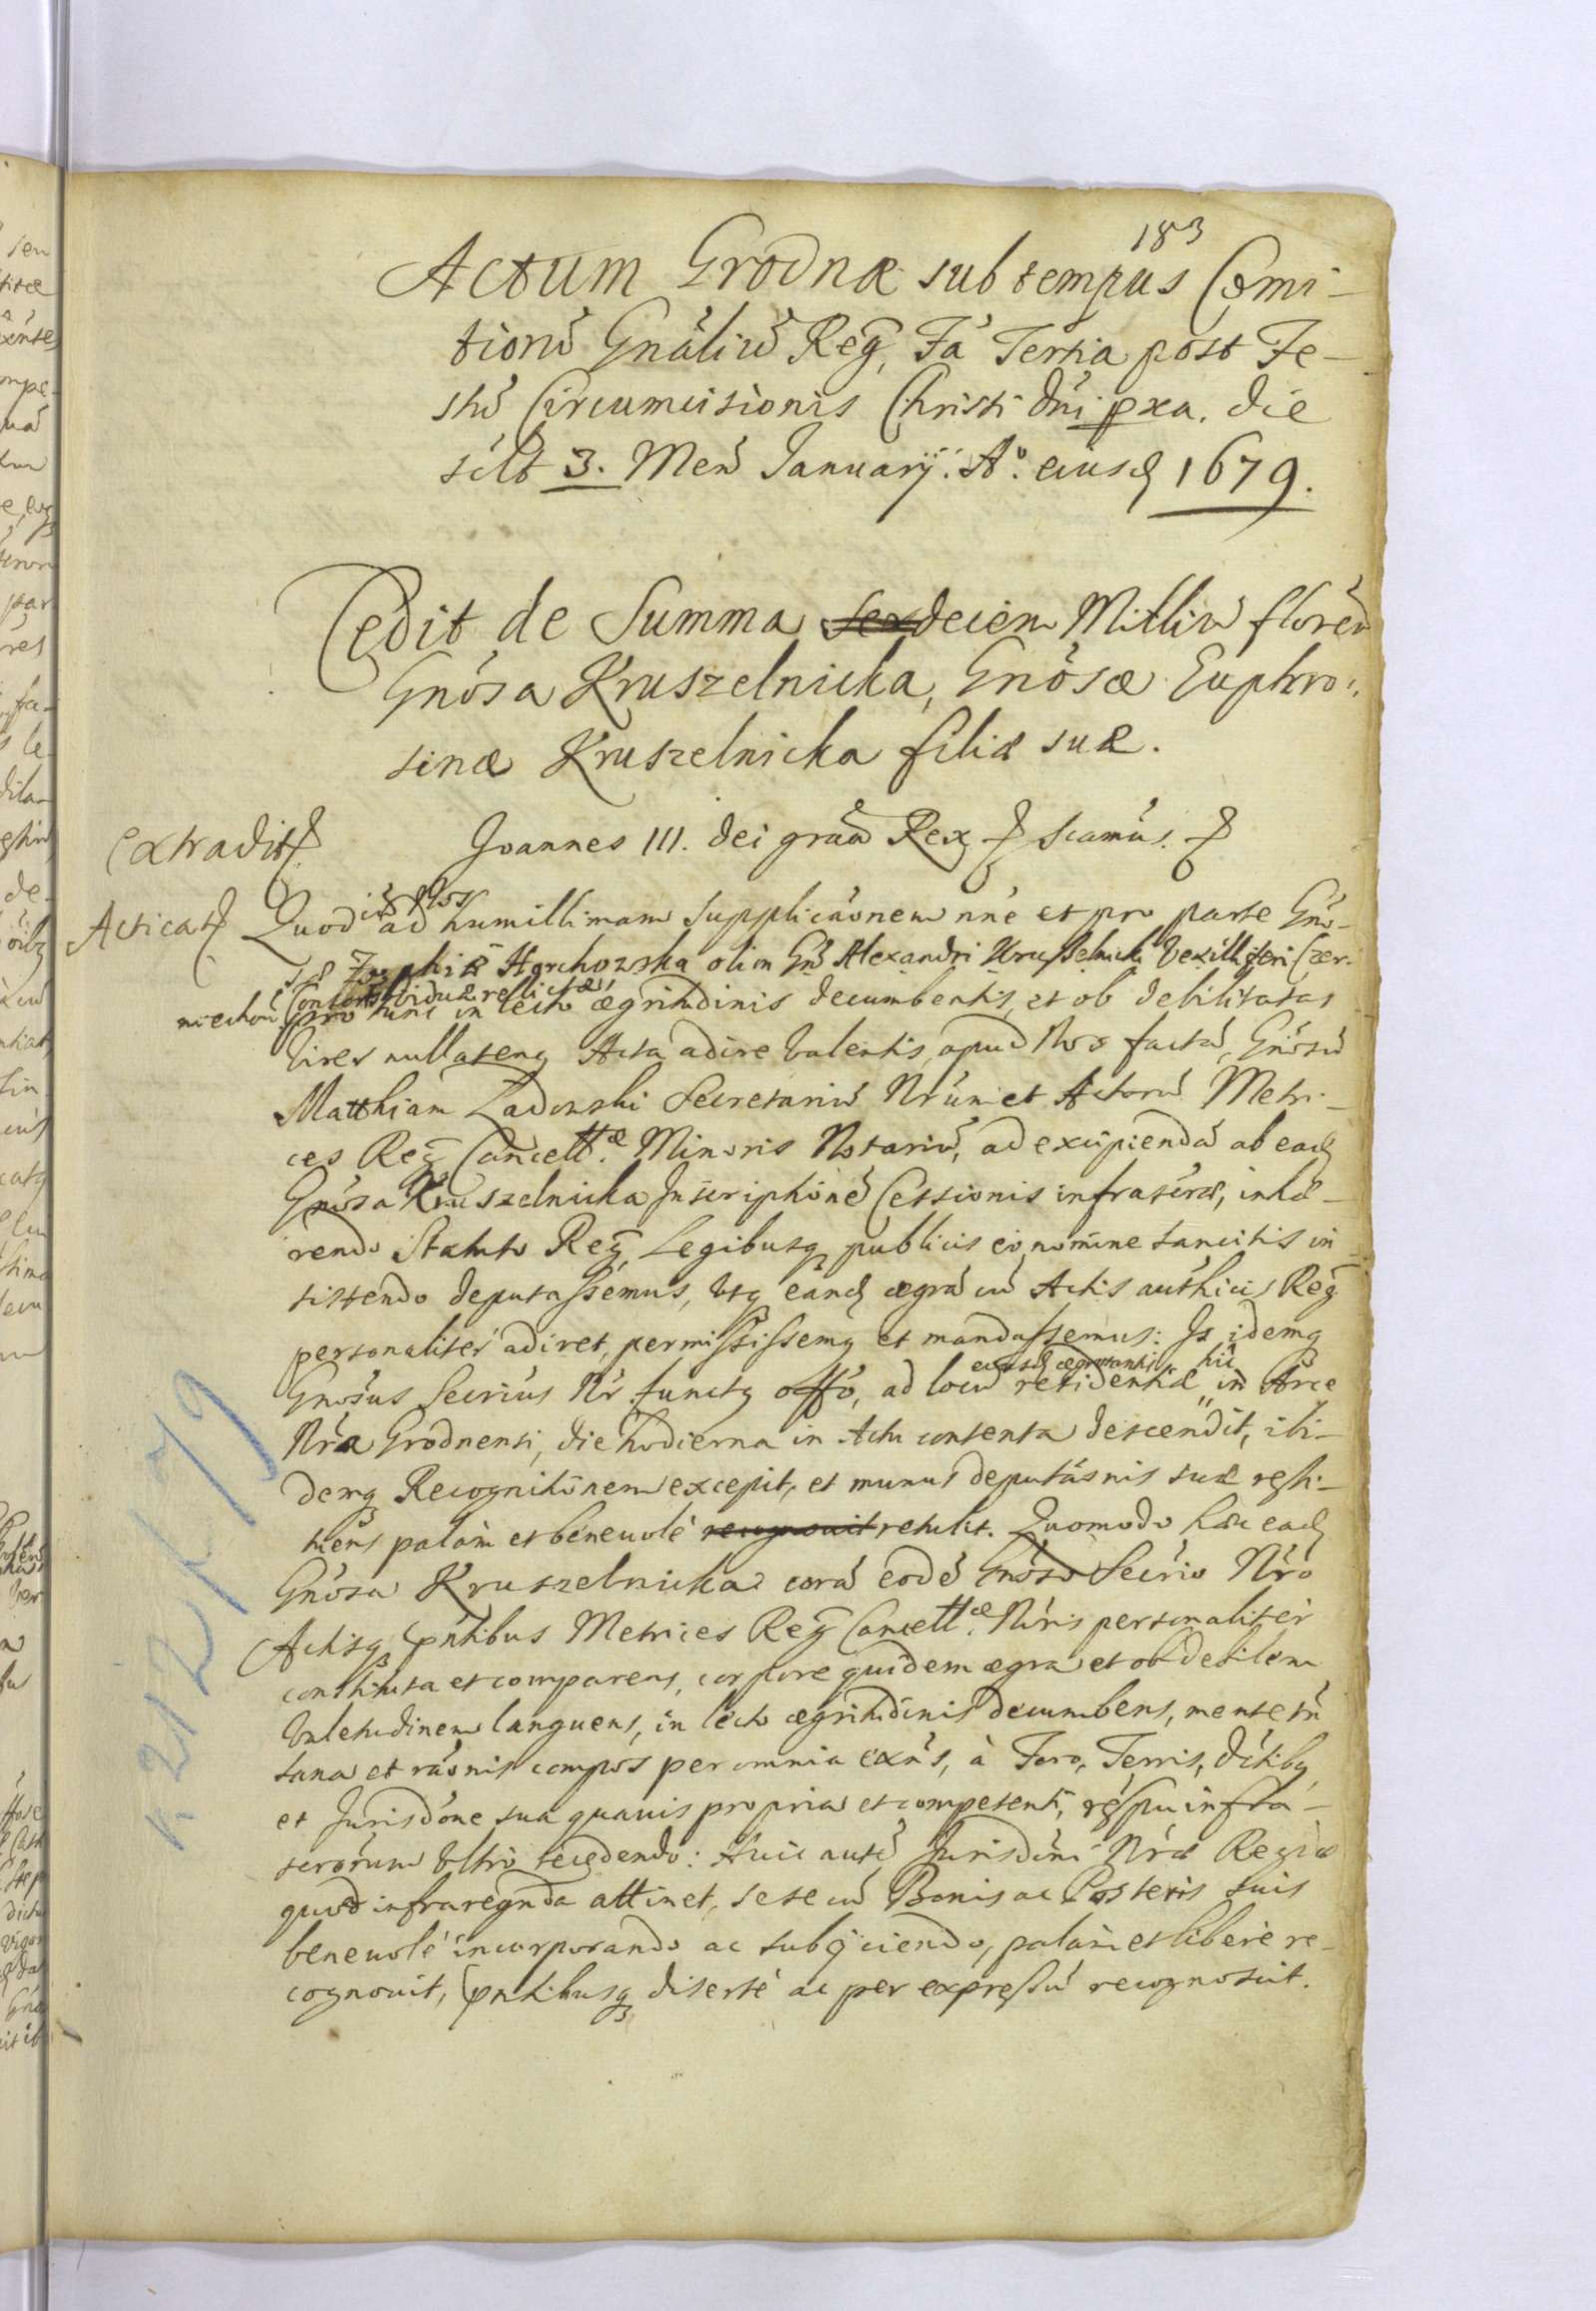 183
Actum Grodnæ sub tempus Comi-
tionũ Gnãliũ Regȷ̃, Fã Tertia post Fe-
stũ Circumcisionis Christi dñi pxa. die
scilt 3. Men̄ Januarij: Aº. eiusd 1679.
Cedit de Summa sexdecem Milliũ floren̄
Gnosa Kruszelnicka, Gnosæ Euphro:
sinæ Kruszelnicka filiæ suæ.
Extradit
Joannes III. dei grãa Rex Scamus.
Acticat
Quod cũ Nos ad humillimam supplicãonem nñe et pro parte Gno-
sæ Sophiæ Horchowska olim Gñi Alexandri Kruszelnicki Vexilliferi Czer-
niechoũ Consortis viduæ relictæ
pro tunc in lecto ægritudinis decumbentis, et ob debilitatas
vires nullateng Acta adire valentis, apud Nos factã, Gnosũ
Matthiam Ladowski Secretariũ Nrũm et Actorũ Metri-
ces Regȷ̃ Cancell.æ Minoris Notariũ, ad excipiendã ab ead
Gnosa Kruszelnicka Inscriptionẽ Cessionis infrascrãe, inhæ-
rendo Statuto Regȷ̃ Legibusq publicis eo nomine sancitis in
sistendo deputassemus, utq eand ægrã cũ Actis authicis Regȷ̃
personaliter adiret, permississemq et mandassemus: Is idemq
Gnosus Secrius Nr. functq offo, ad locũ residentiæ eiusd ægrotantis hic in Arce
Nrã Grodnensi, die hodierna in Actu contenta descendit, ibi-
demq Recognitionem excepit, et munus deputãonis suæ resti-
tuens palàm et benevolè recognovit retulit. Quomodo hæc ead
Gnosa Kruszelnicka corã eodẽ Gnoso Secrio Nro
Actisq pntibus Metrices Regȷ̃ Cancell.æ Minris personaliter
constituta et comparens, corpore quidem ægra et ob debilem
valetudinem languens, in lecto ægritudinis decumbens, mente tñ
sana et rãonis compos per omnia exñs, à Foro, Terris, dictibq
et Jurisdõne sua quavis propria et competenti, respu infra-
scrorum ultrò recedendo: Huic autẽ Jurisdõni Nræ Regiæ
quod infraregnda attinet, sese cũ Bonis ac Posteris suis
benevolè incorporando ac subijciendo, palàm et liberè re-
cognovit, pntibusq disertè ac per expressũ recognoscit.
k 212/79